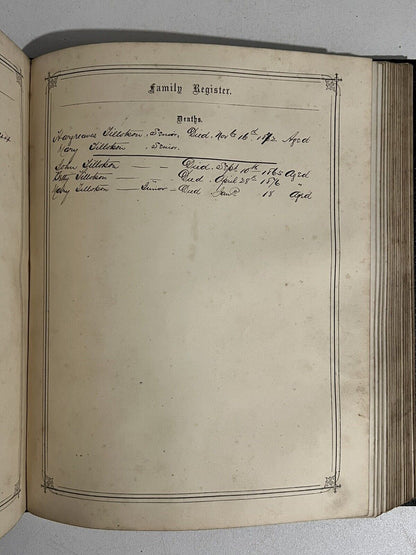 Family Register.
Deaths.
Hargreaves Tillotson, Senior, Died. Novr 16th 1872 Aged
Mary Tillotson, Senior.
John Tillotson — — Died. Sept 10th 1865 Aged
Betty Tillotson — — Died. April 28th 1876 "
Mary Tillotson — Junior — Died Jany 18 Aged